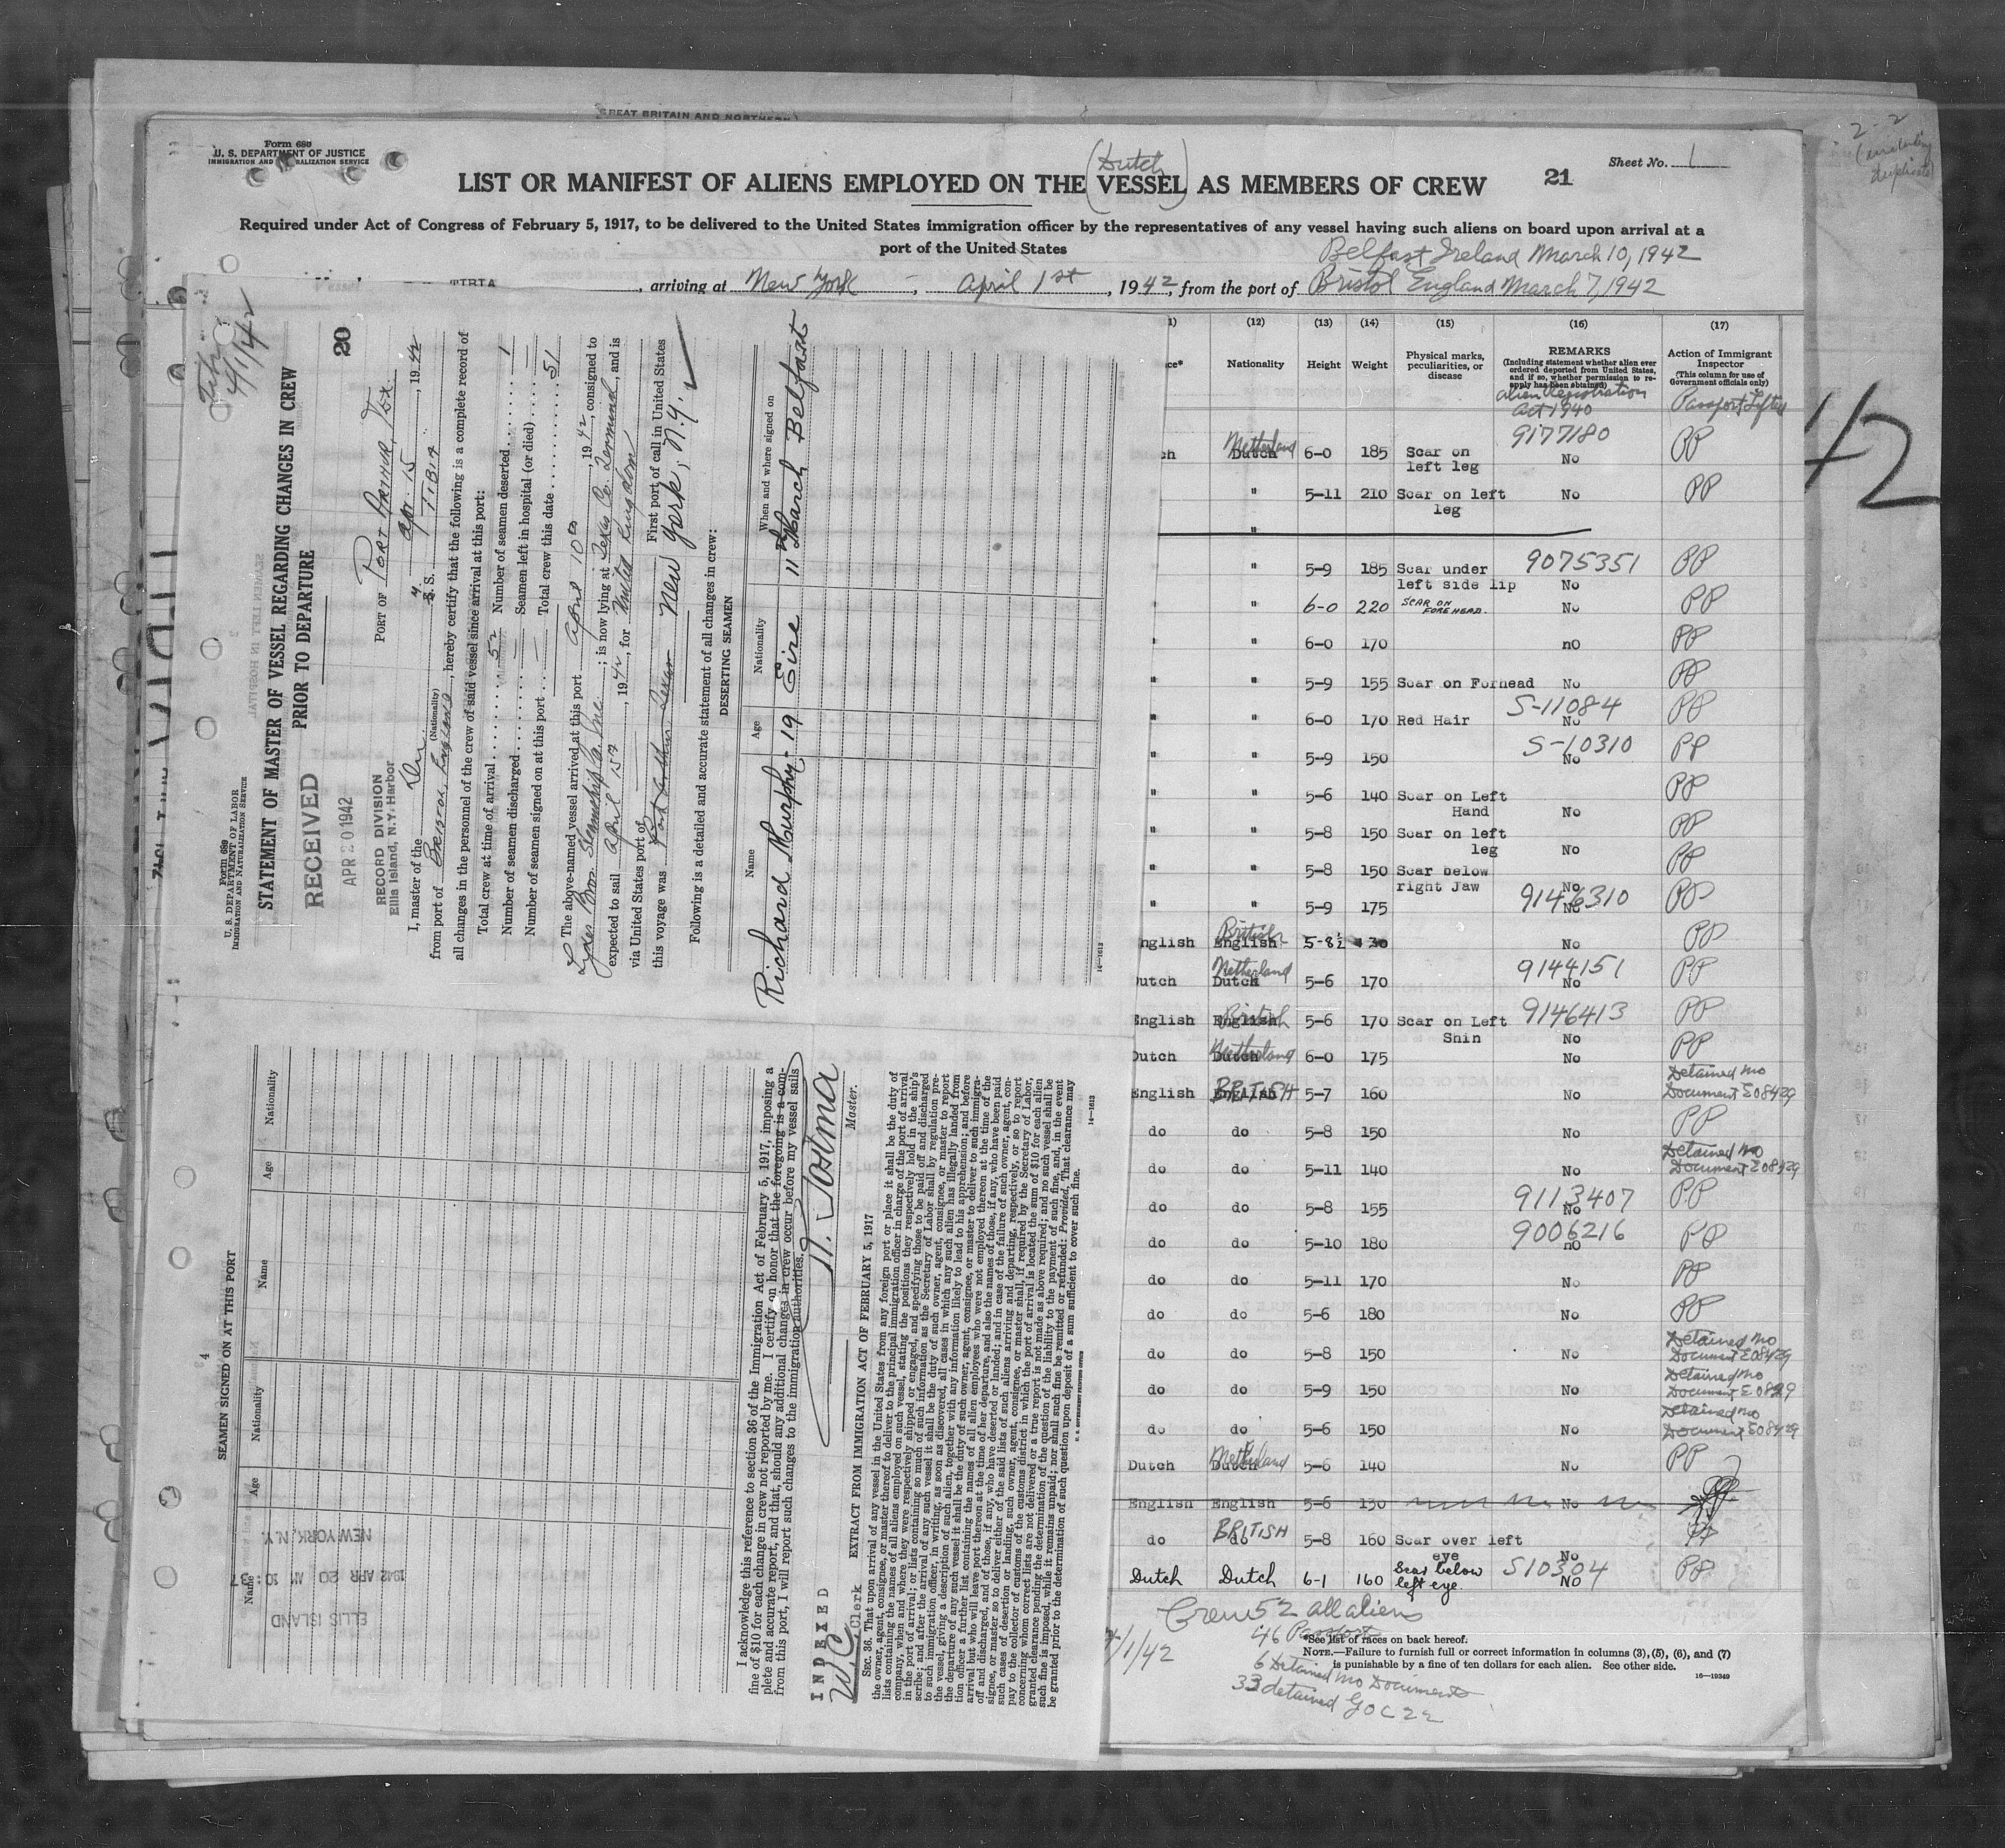 GREAT BRITAIN AND NORTHERN
Form 680
U. S. DEPARTMENT OF JUSTICE
IMMIGRATION AND NATURALIZATION SERVICE
Sheet No. 1
(Dutch)
LIST OR MANIFEST OF ALIENS EMPLOYED ON THE VESSEL AS MEMBERS OF CREW
21
Required under Act of Congress of February 5, 1917, to be delivered to the United States immigration officer by the representatives of any vessel having such aliens on board upon arrival at a
port of the United States
Belfast Ireland March 10, 1942
, arriving at New York, April 1st, 1942, from the port of Bristol England March 7, 1942
(12) (13) (14) (15) (16) (17)
Nationality Height Weight Physical marks, peculiarities, or disease
REMARKS
(Including statement whether alien ever ordered deported from United States, and if so, whether permission to reapply has been obtained)
Action of Immigrant Inspector
(This column for use of Government officials only)
Alien Registration
Act 1940
Passport Lifted
9177180
ch Netherland Dutch 6-0 185 Scar on left leg No PP
" 5-11 210 Scar on left leg No PP
"
" 5-9 185 Scar under left side lip 9075351 No PP
" 6-0 220 SCAR ON FOREHEAD. No PP
" " 6-0 170 nO PP
" " 5-9 155 Scar on Forhead No PP
" " 6-0 170 Red Hair S-11084 No PP
" " 5-9 150 S-10310 No PP
" " 5-6 140 Scar on Left Hand No PP
" " 5-8 150 Scar on left leg No PP
" " 5-8 150 Scar below right Jaw No PP
" " 5-9 175 9146310 No PP
English British English 5-8½ 130 No PP
Dutch Netherland Dutch 5-6 170 9144151 No PP
English British English 5-6 170 Scar on Left Shin 9146413 No PP
Dutch Netherland Dutch 6-0 175 No PP
English BRITISH English 5-7 160 No Detained No Document E08429
do do 5-8 150 No PP
do do 5-11 140 No Detained No Document E08429
do do 5-8 155 9113407 No PP
do do 5-10 180 9006216 nO PP
do do 5-11 170 No PP
do do 5-6 180 No PP
do do 5-8 150 No Detained No Document E08429
do do 5-9 150 No Detained No Document E08429
do do 5-6 150 No Detained No Document E08429
Dutch Netherland Dutch 5-6 140 No PP
English English 5-6 130 No
do BRITISH do 5-8 160 Scar over left eye No PP
Dutch Dutch 6-1 160 Scar below left eye S10304 NO PP
Crew 52 all aliens
46 Passport
6 Detained No Documents
33 detained GOC 22
4/1/42
*See list of races on back hereof.
NOTE.—Failure to furnish full or correct information in columns (3), (5), (6), and (7)
is punishable by a fine of ten dollars for each alien. See other side.
16—19349
Form 689
U. S. DEPARTMENT OF LABOR
IMMIGRATION AND NATURALIZATION SERVICE
4/1/42
20
STATEMENT OF MASTER OF VESSEL REGARDING CHANGES IN CREW
PRIOR TO DEPARTURE
RECEIVED
APR 20 1942
RECORD DIVISION
Ellis Island, N.Y. Harbor
PORT OF PORT ARTHUR, Tex.
Apr. 15, 1942
I, master of the S. S. TIBIA
from port of Bristol, England (Nationality), hereby certify that the following is a complete record of
all changes in the personnel of the crew of said vessel since arrival at this port:
Total crew at time of arrival 52 Number of seamen deserted 1
Number of seamen discharged — Seamen left in hospital (or died) —
Number of seamen signed on at this port — Total crew this date 51
The above-named vessel arrived at this port April 10th, 1942, consigned to
Lykes Bros. Steamship Co. Inc.; is now lying at Texas Co. Terminal, and is
expected to sail April 15th, 1942, for United Kingdom
via United States port of
First port of call in United States
this voyage was Port Arthur, Texas New York, N.Y.
Following is a detailed and accurate statement of all changes in crew:
DESERTING SEAMEN
Name Age Nationality When and where signed on
Richard Murphy - 19 Eire 11th March Belfast
14—1613
SEAMEN SIGNED ON AT THIS PORT
Name Age Nationality Name Age Nationality
ELLIS ISLAND
1942 APR 20 AM 10:37
NEW YORK, N.Y.
I acknowledge this reference to section 36 of the Immigration Act of February 5, 1917, imposing a
fine of $10 for each change in crew not reported by me. I certify on honor that the foregoing is a com-
plete and accurate report, and that, should any additional changes in crew occur before my vessel sails
from this port, I will report such changes to the immigration authorities.
Master.
INDEXED
Clerk
EXTRACT FROM IMMIGRATION ACT OF FEBRUARY 5, 1917
SEC. 36. That upon arrival of any vessel in the United States from any foreign port or place it shall be the duty of
the owner, agent, consignee, or master thereof to deliver to the principal immigration officer in charge of the port of arrival
lists containing the names of all aliens employed on such vessel, stating the positions they respectively hold in the ship's
company, when and where they were respectively shipped or engaged, and specifying those to be paid off and discharged
in the port of arrival; or lists containing so much of such information as the Secretary of Labor shall by regulation pre-
scribe; and after the arrival of any such vessel it shall be the duty of such owner, agent, consignee, or master to report
to such immigration officer, in writing, as soon as discovered, all cases in which any such alien has illegally landed from
the vessel, giving a description of such alien, together with any information likely to lead to his apprehension; and before
the departure of any such vessel it shall be the duty of such owner, agent, consignee, or master to deliver to such immigra-
tion officer a further list containing the names of all alien employees who were not employed thereon at the time of the
arrival but who will leave port thereon at the time of her departure, and also the names of those, if any, who have been paid
off and discharged, and of those, if any, who have deserted or landed; and in case of the failure of such owner, agent, con-
signee, or master so to deliver either of the said lists of such aliens arriving and departing, respectively, or so to report
such cases of desertion or landing, such owner, agent, consignee, or master shall, if required by the Secretary of Labor,
pay to the collector of customs of the customs district in which the port of arrival is located the sum of $10 for each alien
concerning whom correct lists are not delivered or a true report is not made as above required; and no such vessel shall be
granted clearance pending the determination of the question of the liability to the payment of such fine, and, in the event
such fine is imposed, while it remains unpaid; nor shall such fine be remitted or refunded: Provided, That clearance may
be granted prior to the determination of such question upon deposit of a sum sufficient to cover such fine.
14—1613